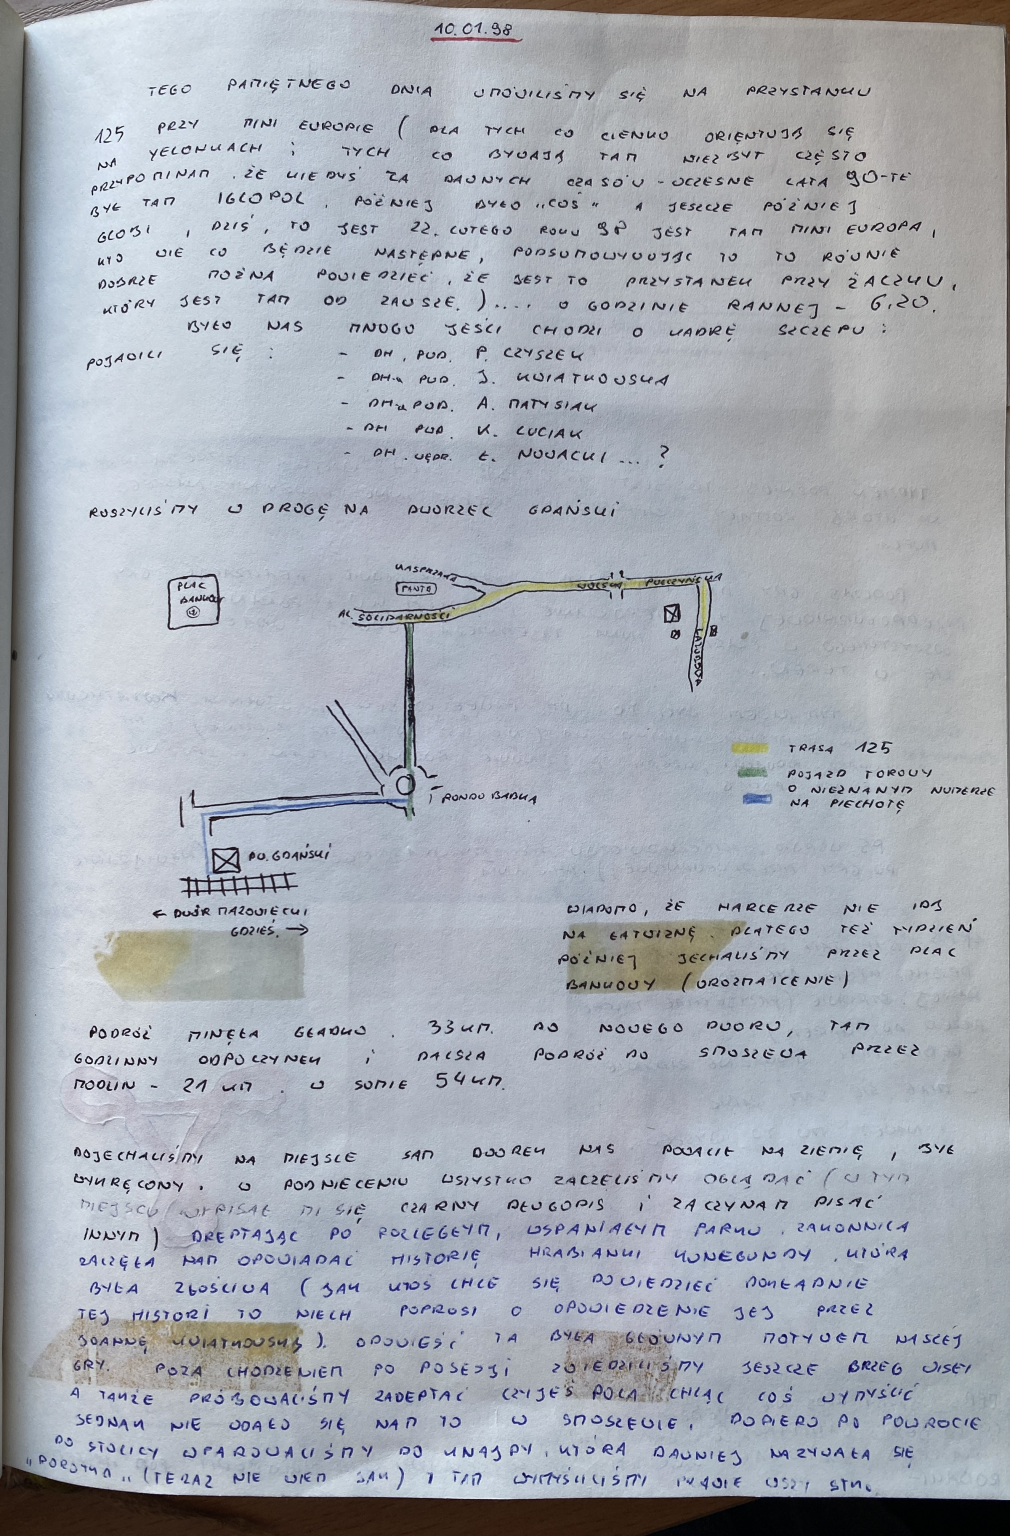 10.01.98
TEGO PAMIĘTNEGO DNIA UMÓWILIŚMY SIĘ NA PRZYSTANKU
125 PRZY MINI EUROPIE ( DLA TYCH CO CIENKO ORIENTUJĄ SIĘ
NA JELONKACH I TYCH CO BYWAJĄ TAM NIEZBYT CZĘSTO
PRZYPOMINAM, ŻE KIEDYŚ ZA DAWNYCH CZASÓW - WCZESNE LATA 90-TE
BYŁ TAM IGLOPOL, PÓŹNIEJ BYŁO "COŚ" A JESZCZE PÓŹNIEJ
GLOBI, DZIŚ, TO JEST 22. LUTEGO ROKU 98 JEST TAM MINI EUROPA,
KTO WIE CO BĘDZIE NASTĘPNE, PODSUMOWYWUJĄC TO TO RÓWNIE
DOBRZE MOŻNA POWIEDZIEĆ, ŻE JEST TO PRZYSTANEK PRZY ŻACZKU,
KTÓRY JEST TAM OD ZAWSZE.).... O GODZINIE RANNEJ - 6.20.
BYŁO NAS MNOGO JEŚLI CHODZI O KADRĘ SZCZEPU :
POJAWILI SIĘ : - DH. PWD. P. CZYSZEK
- DH-A PWD. J. KWIATKOWSKA
- DH-A PWD. A. MATYSIAK
- DH PWD. K. LUCIAK
- DH. WĘDR. Ł. NOWACKI ... ?
RUSZYLIŚMY W DROGĘ NA DWORZEC GDAŃSKI
PLAC BANKOWY
KASPRZAKA
PAWTO
AL. SOLIDARNOŚCI
WOLSKA
POŁCZYŃSKA
LAZUROWA
TRASA 125
POJAZD TOROWY
O NIEZNANYM NUMERZE
NA PIECHOTĘ
RONDO BABKA
DW. GDAŃSKI
← DWÓR MAZOWIECKI
GDZIEŚ →
WIADOMO, ŻE HARCERZE NIE IDĄ
NA ŁATWIZNĘ. DLATEGO TEŻ TYDZIEŃ
PÓŹNIEJ JECHALIŚMY PRZEZ PLAC
BANKOWY (UROZMAICENIE)
PODRÓŻ MINĘŁA GŁADKO. 33 KM. DO NOWEGO DWORU, TAM
GODZINNY ODPOCZYNEK I DALSZA PODRÓŻ DO SMOSZEWA PRZEZ
MODLIN - 21 KM. W SUMIE 54 KM.
DOJECHALIŚMY NA MIEJSCE SAM DWOREK NAS POWALIŁ NA ZIEMIĘ, BYŁ
WYKRĘCONY. W PODNIECENIU WSZYSTKO ZACZELIŚMY OGLĄDAĆ (W TYM
MIEJSCU WYPISAŁ MI SIĘ CZARNY DŁUGOPIS I ZACZYNAM PISAĆ
INNYM) DREPTAJĄC PO ROZLEGŁYM, WSPANIAŁYM PARKU. ZAKONNICA
ZACZĘŁA NAM OPOWIADAĆ HISTORIĘ HRABIANKI KUNEGUNDY, KTÓRA
BYŁA ZŁOŚLIWA (JAK KTOŚ CHCE SIĘ DOWIEDZIEĆ DOKŁADNIE
TEJ HISTORI TO NIECH POPROSI O OPOWIEDZENIE JEJ PRZEZ
JOANNĘ KWIATKOWSKĄ). OPOWIEŚĆ TA BYŁA GŁÓWNYM MOTYWEM NASZEJ
GRY. POZA CHODZENIEM PO POSESJI ZWIEDZILIŚMY JESZCZE BRZEG WISŁY
A TAKŻE PRÓBOWALIŚMY ZADEPTAĆ CZYJEŚ POLA CHCĄC COŚ WYMYŚLIĆ
JEDNAK NIE UDAŁO SIĘ NAM TO W SMOSZEWIE, DOPIERO PO POWROCIE
DO STOLICY WPAROWALIŚMY DO KNAJPY, KTÓRA DAWNIEJ NAZYWAŁA SIĘ
"DOROTKA" (TERAZ NIE WIEM JAK) I TAM WYMYŚLILIŚMY PRAWIE